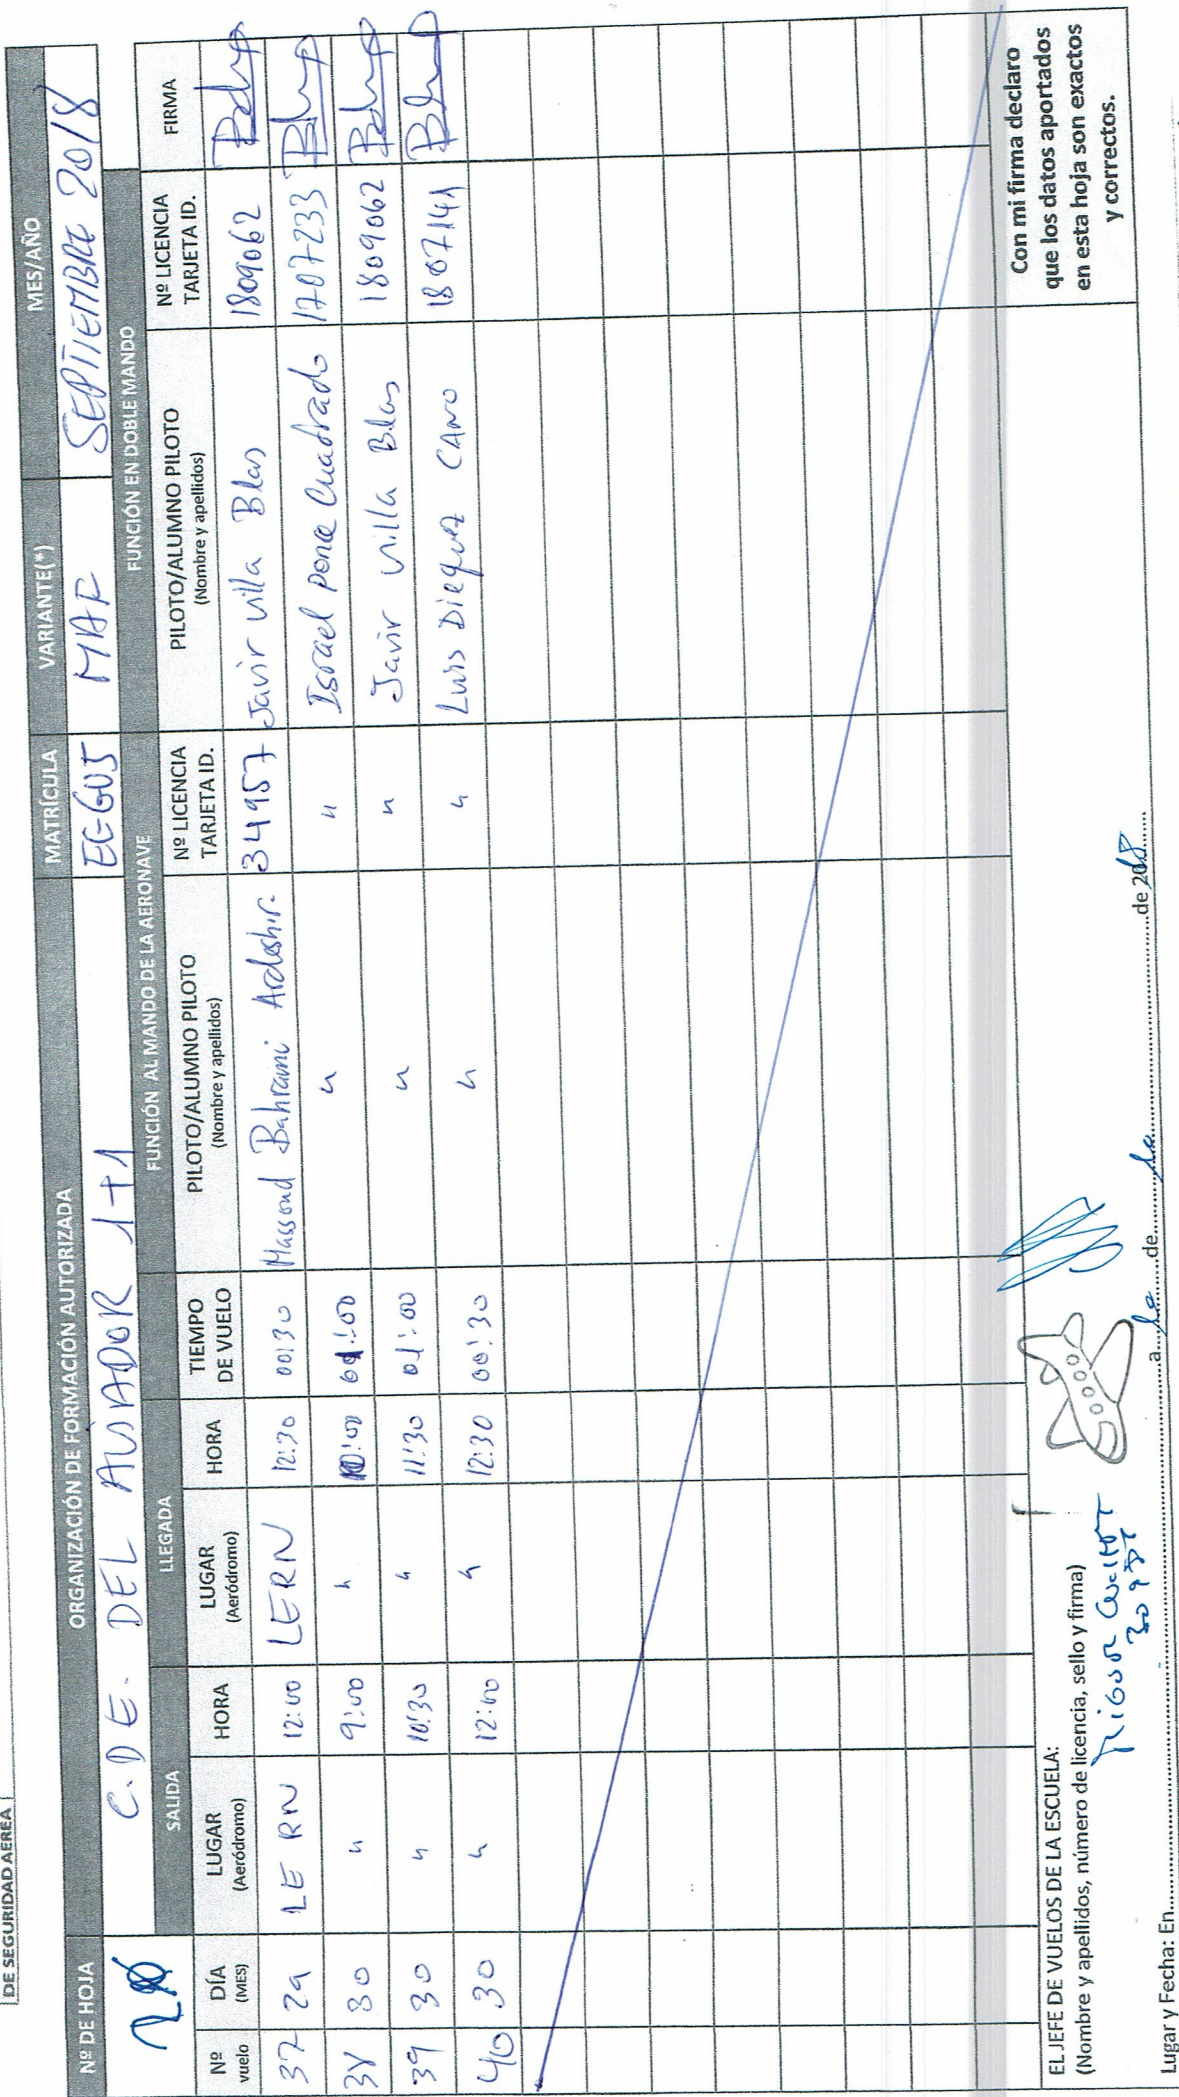 DE SEGURIDAD AÉREA
Nº DE HOJA ORGANIZACIÓN DE FORMACIÓN AUTORIZADA MATRÍCULA VARIANTE(*) MES/AÑO
C.D.E. DEL AVIADOR 1+1 ECGU5 MAF SEPTIEMBRE 2018
SALIDA LLEGADA FUNCIÓN AL MANDO DE LA AERONAVE FUNCIÓN EN DOBLE MANDO
Nº vuelo DÍA (MES) LUGAR (Aeródromo) HORA LUGAR (Aeródromo) HORA TIEMPO DE VUELO PILOTO/ALUMNO PILOTO (Nombre y apellidos) Nº LICENCIA TARJETA ID. PILOTO/ALUMNO PILOTO (Nombre y apellidos) Nº LICENCIA TARJETA ID. FIRMA
37 29 LERN 12:00 LERN 12:30 00:30 Massoud Bahrami Ardeshir 34957 Javir Villa Blas 1809062
38 30 " 9:00 " 10:00 01:00 " " Israel Ponce Cuadrado 1707233
39 30 " 10:30 " 11:30 01:00 " " Javir Villa Blas 1809062
40 30 " 12:00 " 12:30 00:30 " " Luis Dieguez CANO 1807141
EL JEFE DE VUELOS DE LA ESCUELA:
(Nombre y apellidos, número de licencia, sello y firma)
Con mi firma declaro
que los datos aportados
en esta hoja son exactos
y correctos.
Lugar y Fecha: En a de de 2018